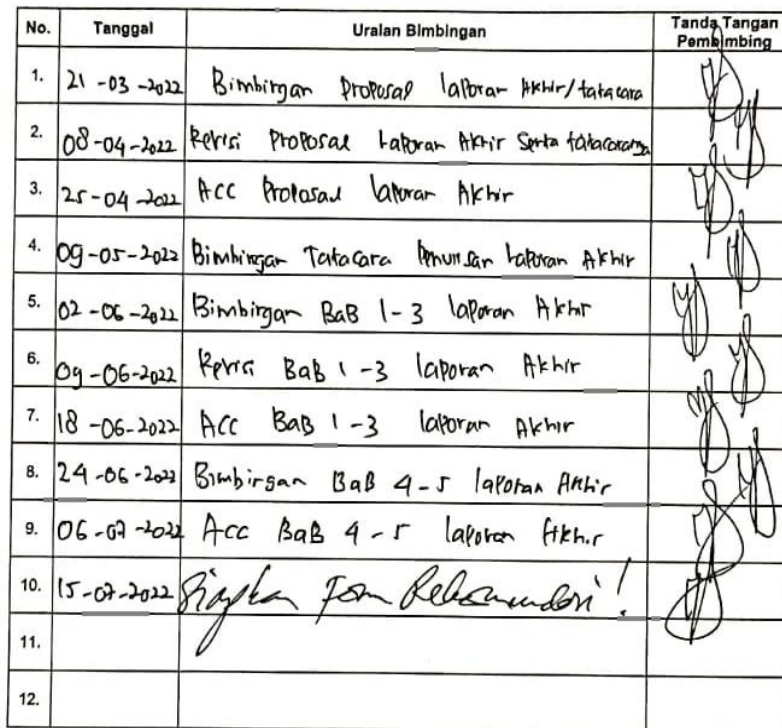 No. Tanggal Uraian Bimbingan Tanda Tangan Pembimbing
1. 21-03-2022 Bimbingan Proposal laporan Akhir/tatacara
2. 08-04-2022 Revisi Proposal Laporan Akhir Serta tatacaranya
3. 25-04-2022 ACC Proposal laporan Akhir
4. 09-05-2022 Bimbingan Tatacara Penulisan Laporan Akhir
5. 02-06-2022 Bimbingan BaB 1-3 laporan Akhir
6. 09-06-2022 Revisi BaB 1-3 laporan Akhir
7. 18-06-2022 ACC BaB 1-3 laporan Akhir
8. 24-06-2022 Bimbingan BaB 4-5 laporan Akhir
9. 06-07-2022 Acc BaB 4-5 laporan Akhir
10. 15-07-2022 Siapkan Form Rekomendasi!
11.
12.